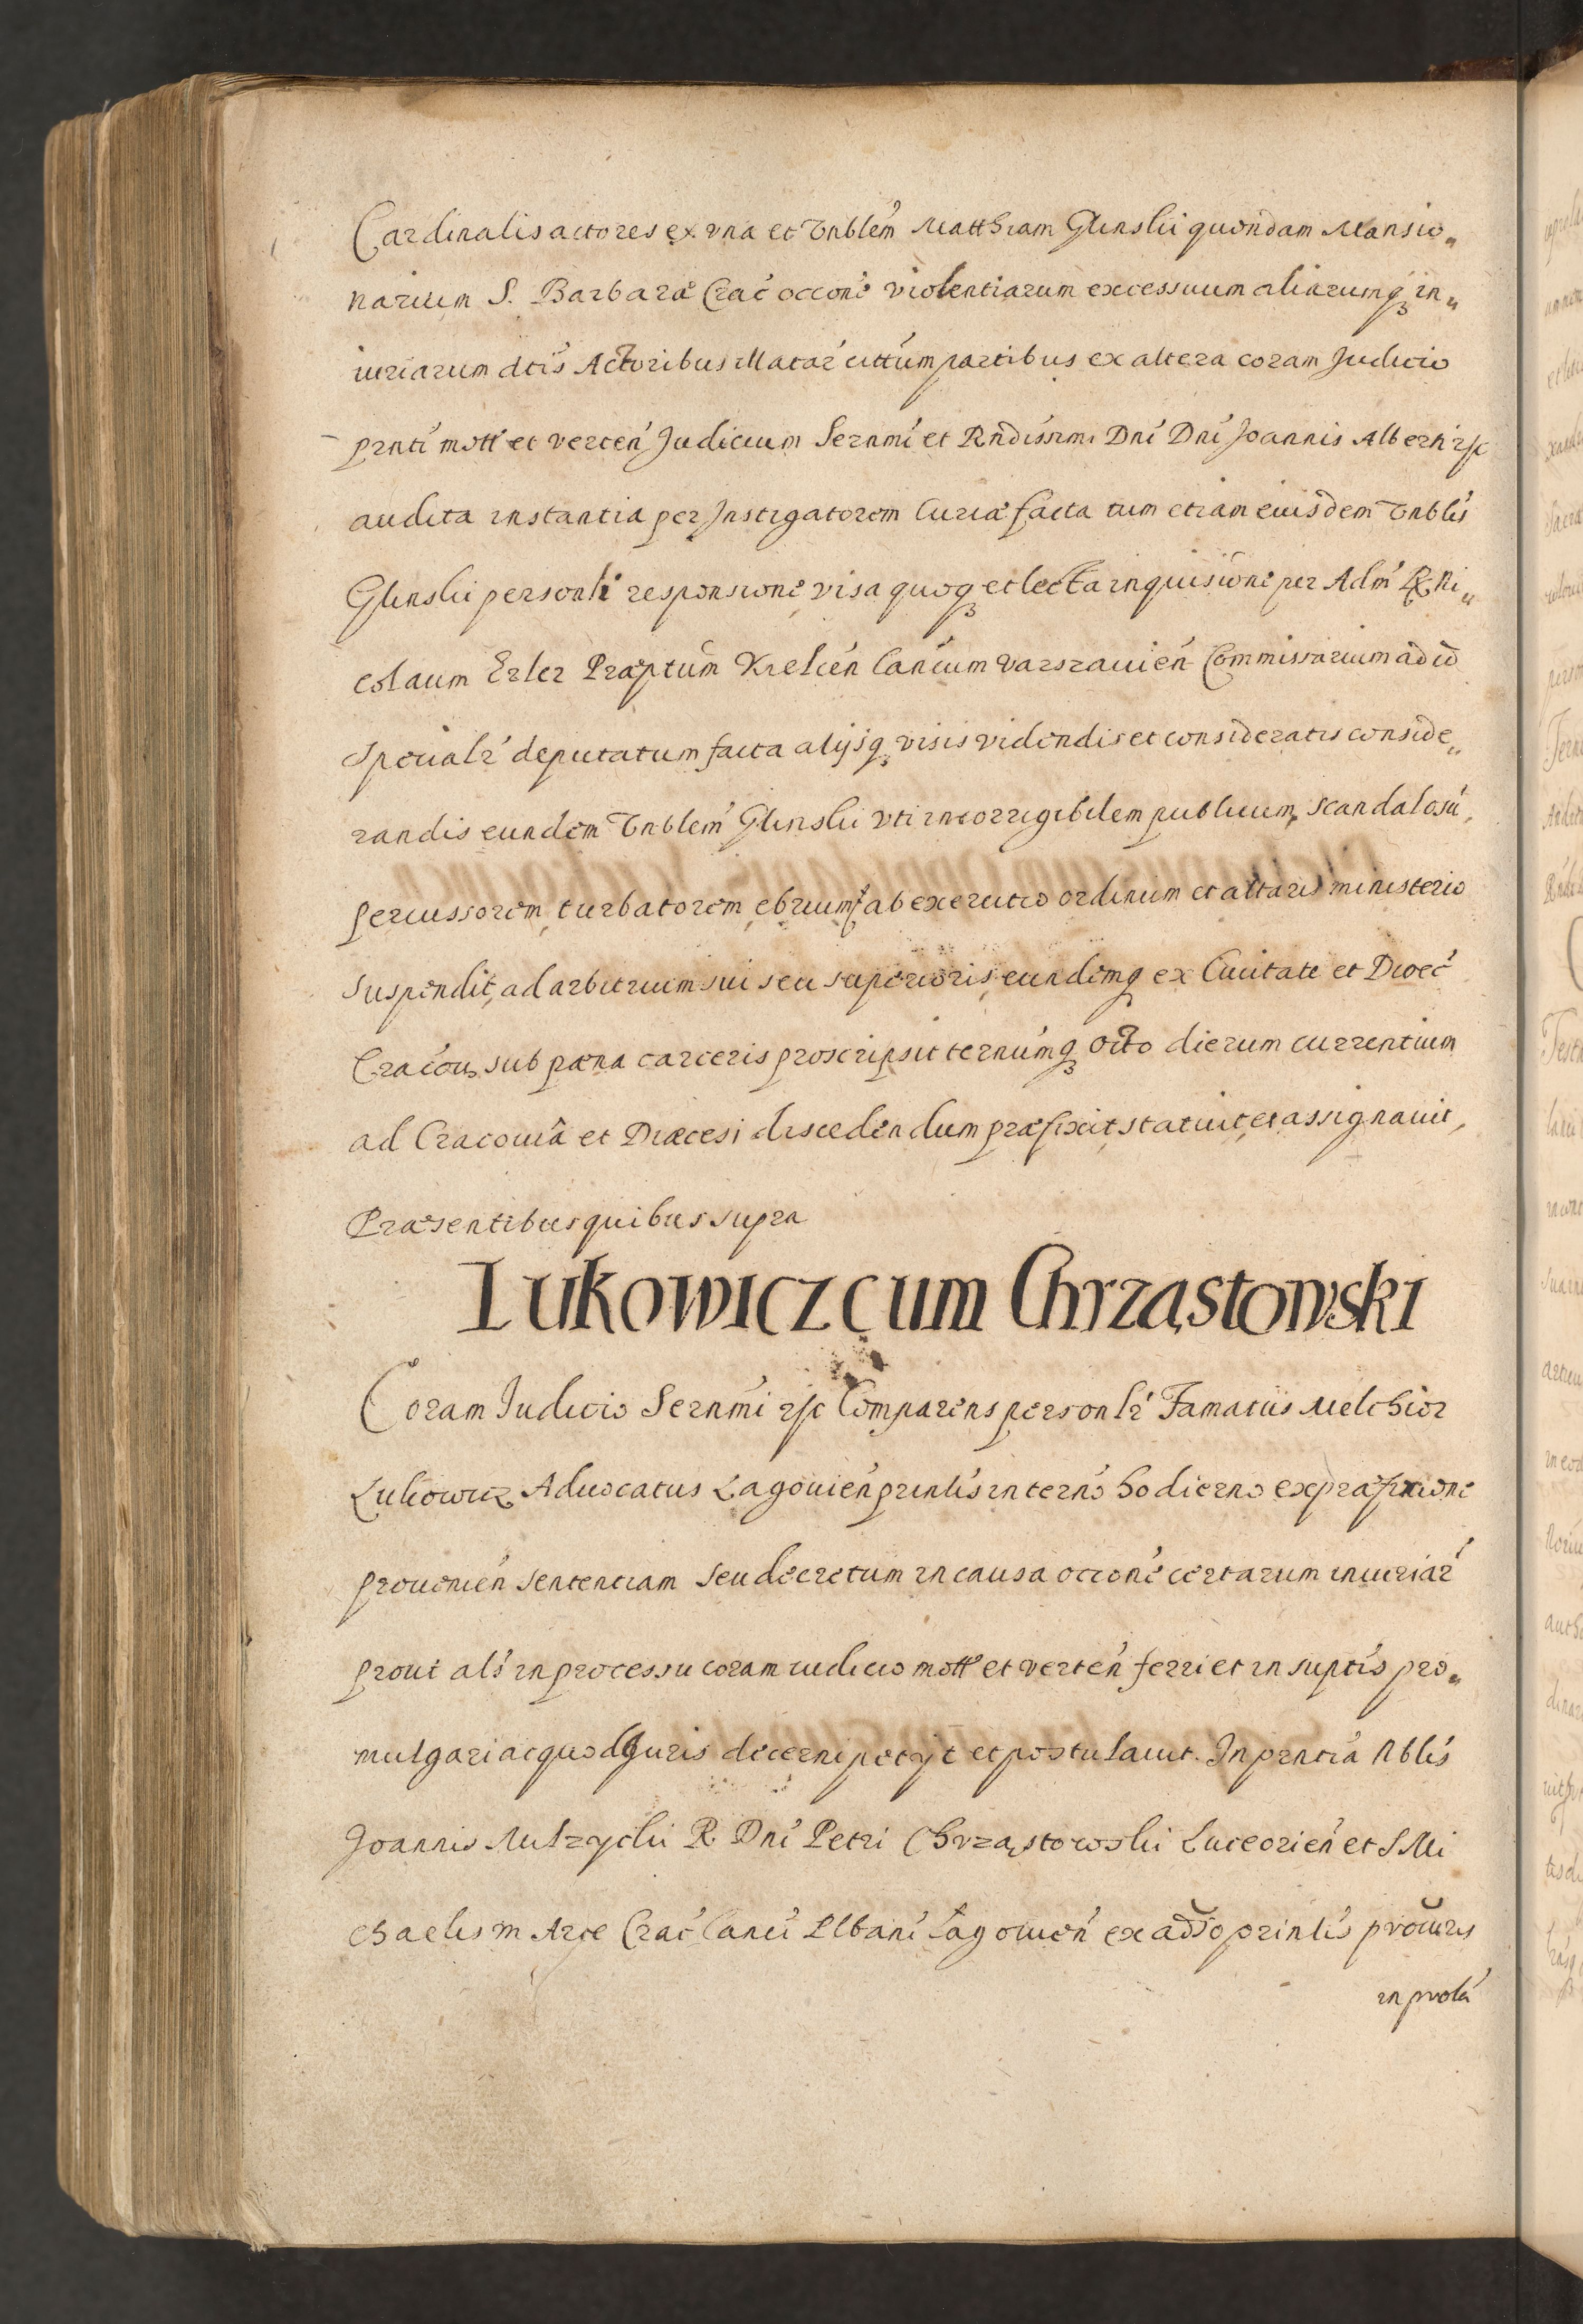 Cardinalis actores ex vna et Vnblem̃ Matthiam Glinski quondam Mansio„
narium S. Barbaræ Crac̃ occone violentiarum excessuum aliarumq3 in„
iuriarum dtis Actoribus illatar̃ citum partibus ex altera coram Judicio
prnti mott et verten̄ Judicium Sernmi et Rndissimi Dni Dni Joannis Alberti etc
audita instantia per Instigatorem Curiæ facta tum etiam eiusdem Vnblis
Glinski personli responsione, visa quoq3 et lecta inquisitione per Adm̃ R Ni„
colaum Erler Præptum Kielcen̄ Canicum Varsauien̄ Commissarium ad id
specialr̃ deputatum facta alijsq3 visis videndis et consideratis conside„
randis eundem Vnblem̃ Glinski vti incorrigibilem publicum, scandalosũ,
percussorem, turbatorem, ebrium, ab exercitio ordinum et altaris ministerio
suspendit, ad arbitrium sui seu superioris, eundemq3 ex Ciuitate et Dioec̃
Cracou, sub pæna carceris proscripsit ternumq3 octo dierum currentium
ad Cracouiâ et Diæcesi discedendum præfixit, statuit, et assignauit,
Præsentibus quibus supra
Lukowicz cum Chrząstowski
Coram Iudicio Sernmi etc Comparens personlr̃ Famatus Melchior
Lukowicz Aduocatus Lagouien̄ prinlis in terno hodierno ex præfixione
prouenien̄ sententiam seu decretum in causa occone certarum iniuriar̃
prout als in processu coram iudicio mott et verten̄ ferri et in suptis pro„
mulgari ac quod Juris decerni petijt et postulauit. In prntia Nblis
Joannis Mulzycki R Dni Petri Chrząstowski Luceorien̄ et S Mi
chaelis in Arce Crac̃ Canci Plbani Lagouien̄ ex adso prinlis prouris
in prolã